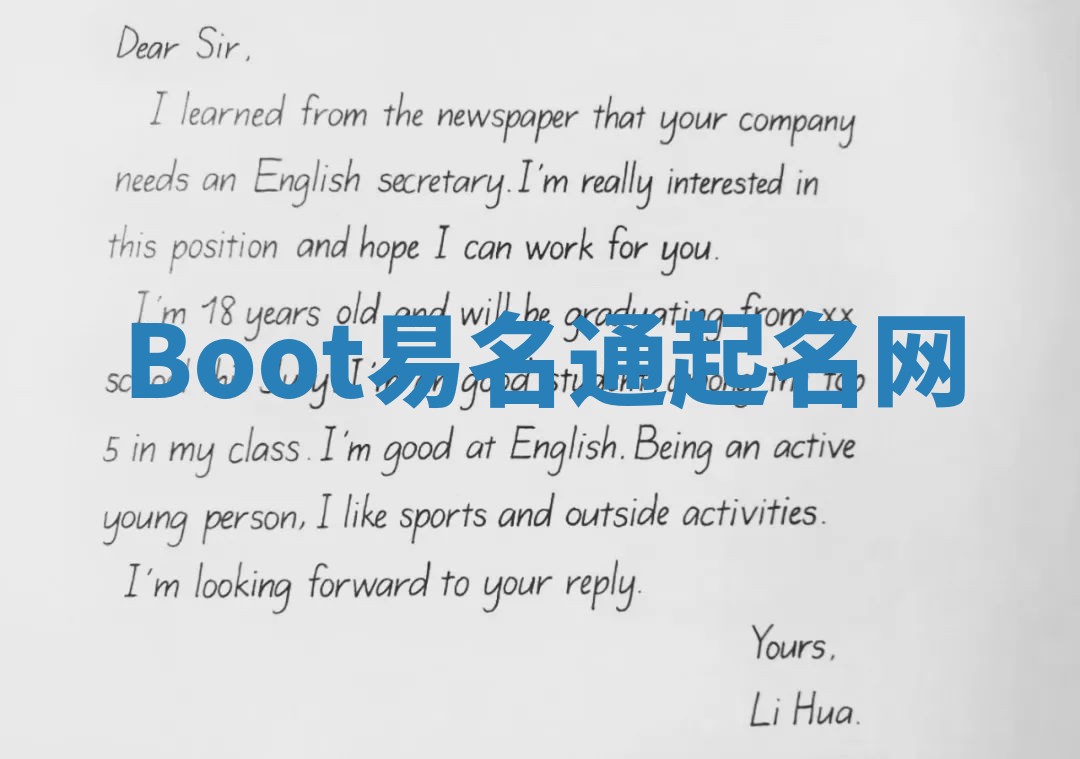 Dear Sir,
I learned from the newspaper that your company
needs an English secretary. I'm really interested in
this position and hope I can work for you.
I'm 18 years old and will be graduating from xx
Boot易名通起名网
July. I'm good student, among the top
5 in my class. I'm good at English. Being an active
young person, I like sports and outside activities.
I'm looking forward to your reply.
Yours,
Li Hua.